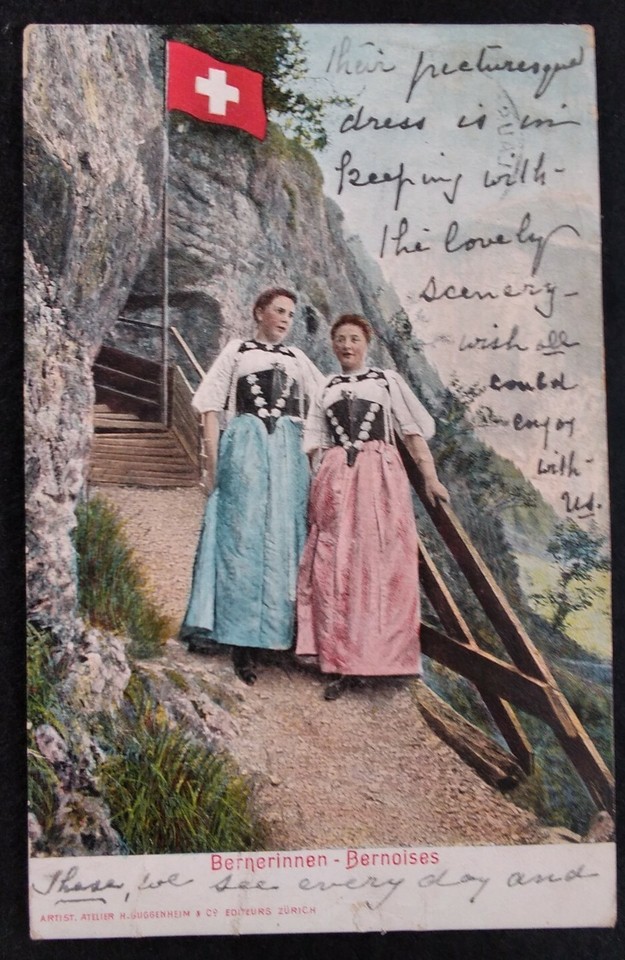 their picturesque
dress is in
keeping with-
the lovely
scenery-
wish all
could
enjoy
with-
us.
Bernerinnen - Bernoises
These, we see every day and
ARTIST. ATELIER H. GUGGENHEIM & Cº EDITEURS ZÜRICH